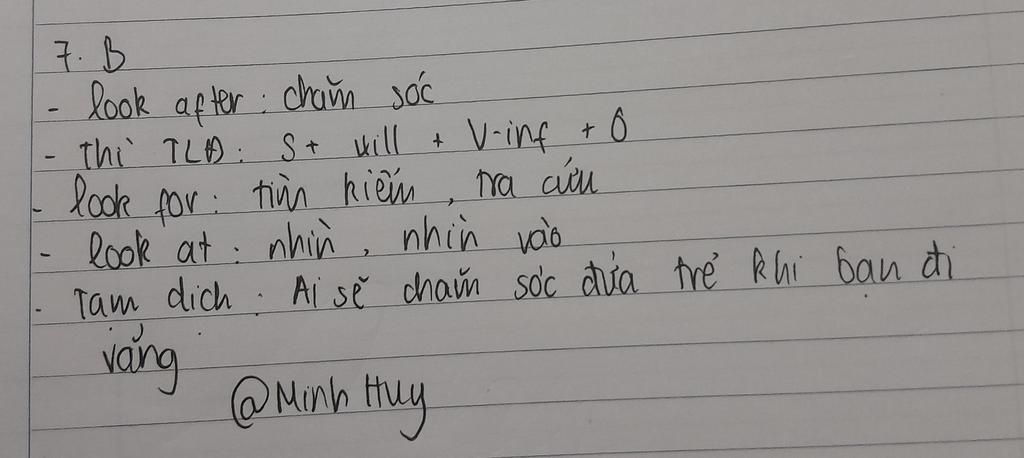 7. B
- look after : chăm sóc
- thì TLĐ : S + will + V-inf + O
- look for : tìm kiếm , tra cứu
- look at : nhìn , nhìn vào
- Tạm dịch : Ai sẽ chăm sóc đứa trẻ khi bạn đi
vắng
@Minh Huy